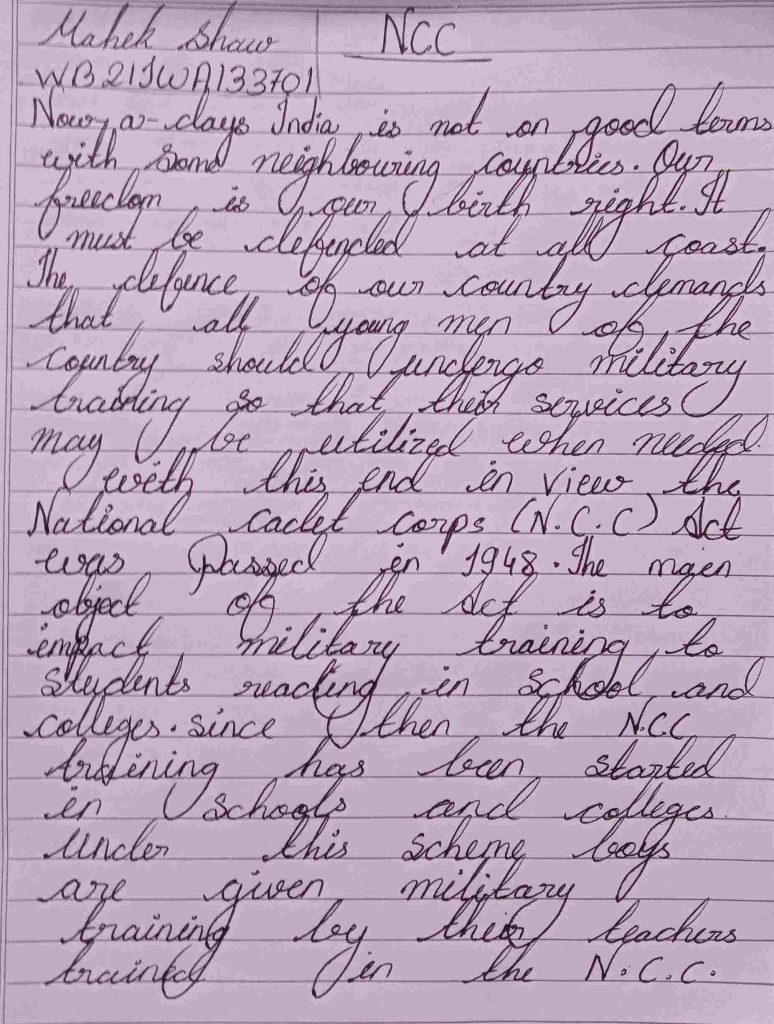 Mahek Shaw
NCC
WB21JWA133701
Now, a-days India is not on good terms
with some neighbouring countries. Our
freedom is our birth right. It
must be defended at all coast.
The defence of our country demands
that all young men of the
country should undergo military
training so that their services
may be utilized when needed.
with this end in view the
National cadet corps (N.C.C) Act
was passed in 1948. The main
object of the Act is to
impact military training to
students reading in school and
colleges. since then the N.CC
training has been started
in schools and colleges.
Under this scheme boys
are given military
training by their teachers
trained in the N.C.C.